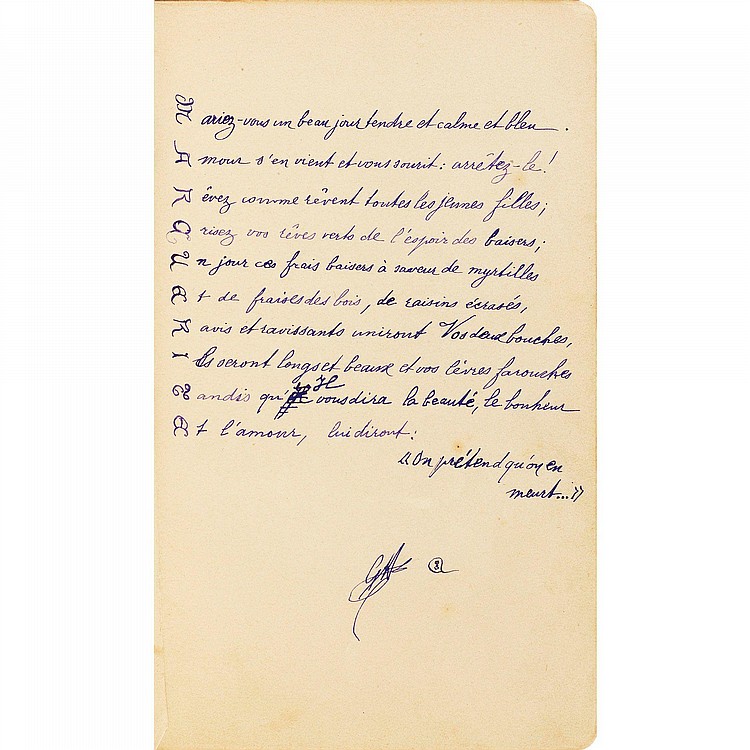 Mariez-vous un beau jour tendre et calme et bleu.
Amour s'en vient et vous sourit : arrêtez-le !
Rêvez comme rêvent toutes les jeunes filles ;
Grisez vos rêves verts de l'espoir des baisers ;
Un jour ces frais baisers à saveur de myrtilles
Et de fraises des bois, de raisins écrasés,
Ravis et ravissants uniront Vos deux bouches,
Ils seront longs et beaux et vos lèvres farouches
Tandis qu'Il vous dira la beauté, le bonheur
Et l'amour, lui diront :
« On prétend qu'on en
meurt... »